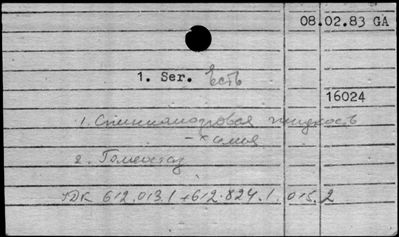 08.02.83 GA
1. Ser. Есть
16024
1. Спинномозговая жидкость
- химия
2. Гомеостаз
УДК 612.013.1+612.824.1.015.2